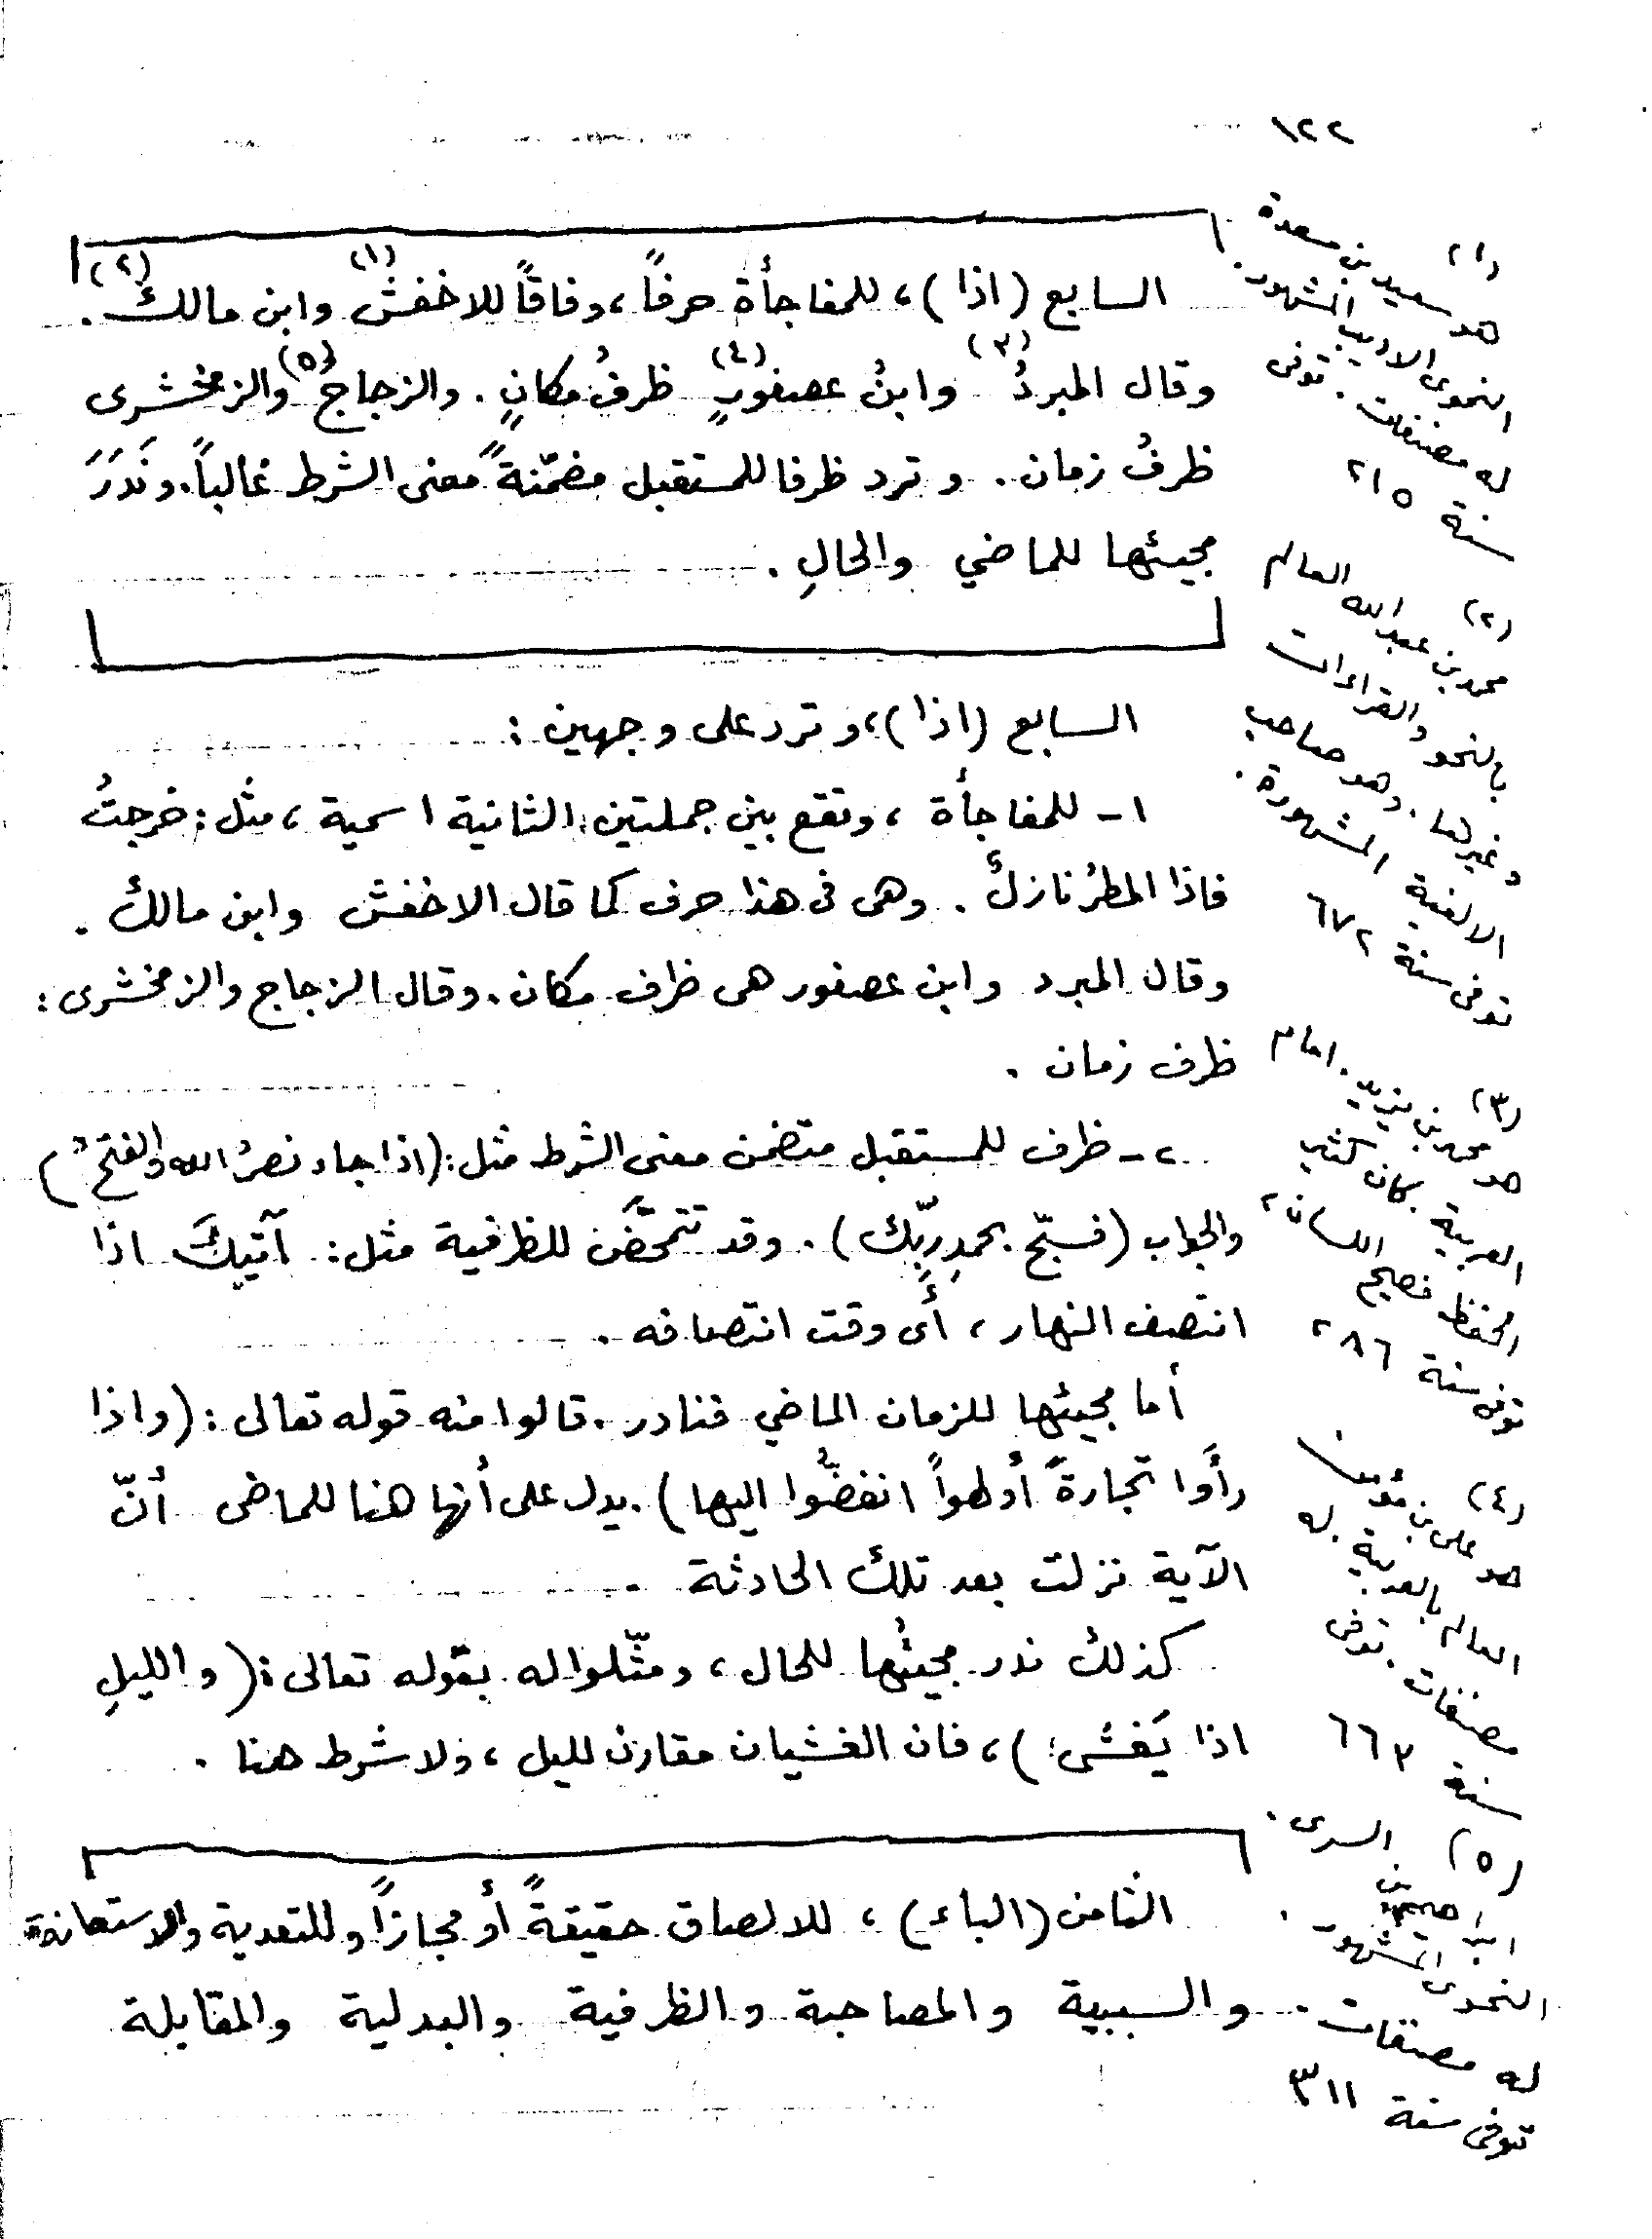 ١٢٢
السابع (اذا)، للمفاجأة حرفاً، وفاقاً للاخفش (١) وابن مالك (٢).
وقال المبردُ (٣) وابنُ عصفورٍ (٤) ظرفُ مكانٍ. والزجاج (٥) والزمخشرى
ظرفُ زمان. وترد ظرفا للمستقبل مضمّنةً معنى الشرط غالباً. ونَدَرَ
مجيئها للماضي والحالِ.
السابع (اذا)، وترد على وجهين :
١ - للمفاجأة ، وتقع بين جملتين الثانية اسمية ، مثل : خرجتُ
فاذا المطرُ نازلٌ. وهى فى هذا حرف كما قال الاخفش وابن مالك .
وقال المبرد وابن عصفور هى ظرف مكان. وقال الزجاج والزمخشرى :
ظرف زمان .
٢ - ظرف للمستقبل متضمن معنى الشرط مثل : (اذا جاء نصرُ الله والفتحُ)
والجواب (فسبّح بحمدِ ربِّك) . وقد تتمحَّض للظرفية مثل : آتيكَ اذا
انتصف النهار ، أى وقت انتصافه .
أما مجيئها للزمان الماضي فنادر . قالوا منه قوله تعالى : (واذا
رأَوا تجارةً أولهواً انفضُّوا اليها) . يدل على أنها هنا للماضى أنّ
الآية نزلت بعد تلك الحادثة .
كذلك ندر مجيئُها للحال ، ومثّلوا له بقوله تعالى : (والليلِ
اذا يَغشى) ، فان الغشيان مقارن لليل ، ولا شرط هنا .
الثامن (الباء) ، للالصاق حقيقةً أو مجازاً وللتعدية والاستعانة
والسببية والمصاحبة والظرفية والبدلية والمقابلة
(١)
هو سعيد بن مسعدة
النحوى الاديب المشهور .
له مصنفات . توفى
سنة ٢١٥
(٢)
محمد بن عبدالله العالم
بالنحو والقراءات
وغيرها . وهو صاحب
الالفية المشهورة .
توفى سنة ٦٧٢
(٣)
هو محمد بن يزيد . امام
العربية كان كثير
الحفظ فصيح اللسان
توفى سنة ٢٨٦
(٤)
هو على بن مؤمن
العالم بالعربية . له
مصنفات . توفى
سنة ٦٦٣
(٥)
ابراهيم بن السرى .
النحوى المشهور .
له مصنفات .
توفى سنة ٣١١